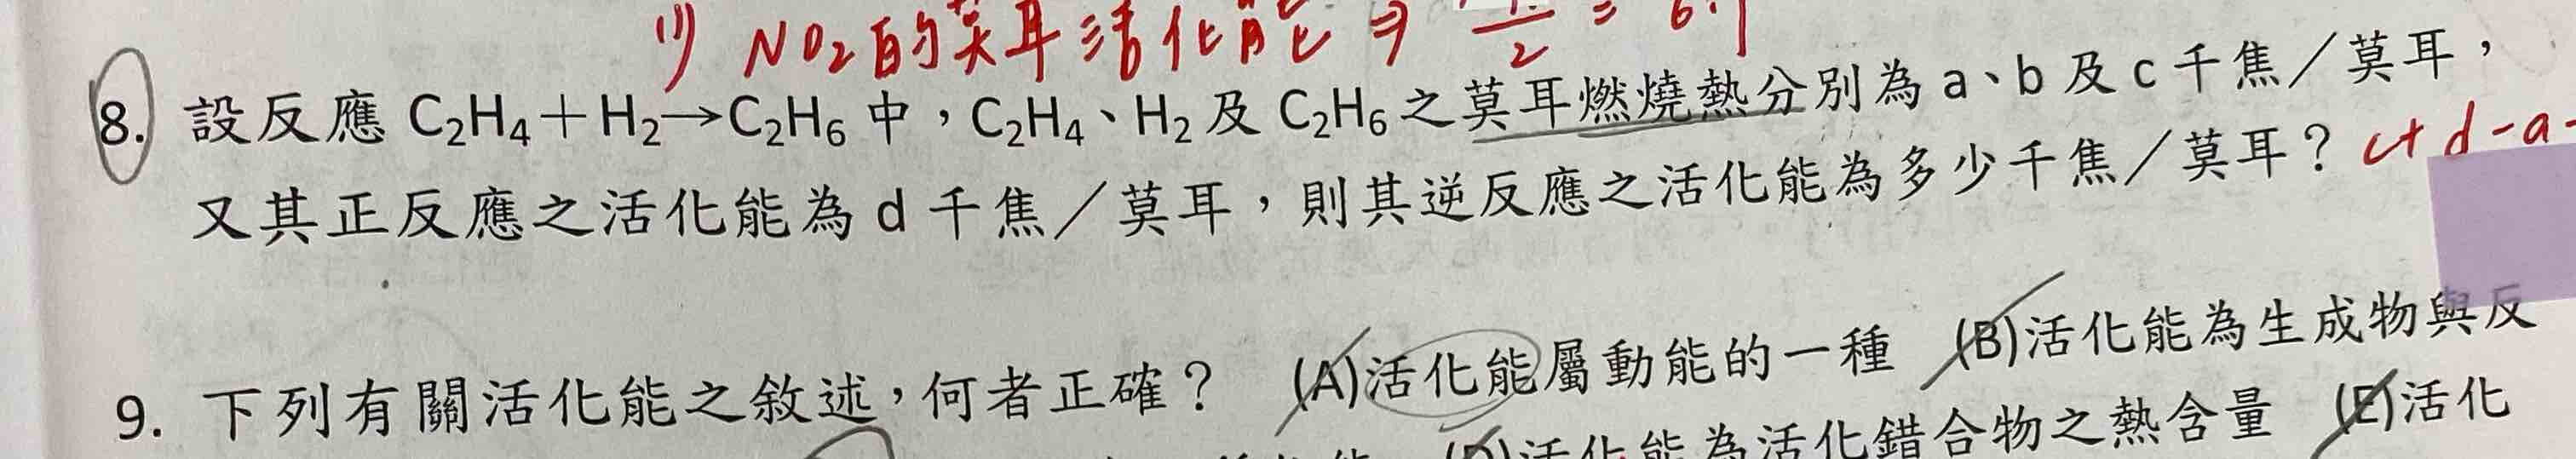 (1) NO₂的莫耳活化能 ⇒
8. 設反應 C₂H₄＋H₂→C₂H₆ 中，C₂H₄、H₂ 及 C₂H₆ 之莫耳燃燒熱分別為 a、b 及 c 千焦／莫耳，
又其正反應之活化能為 d 千焦／莫耳，則其逆反應之活化能為多少千焦／莫耳？ c+d-a-
9. 下列有關活化能之敘述，何者正確？ (A)活化能屬動能的一種 (B)活化能為生成物與反
(D)活化能為活化錯合物之熱含量 (E)活化